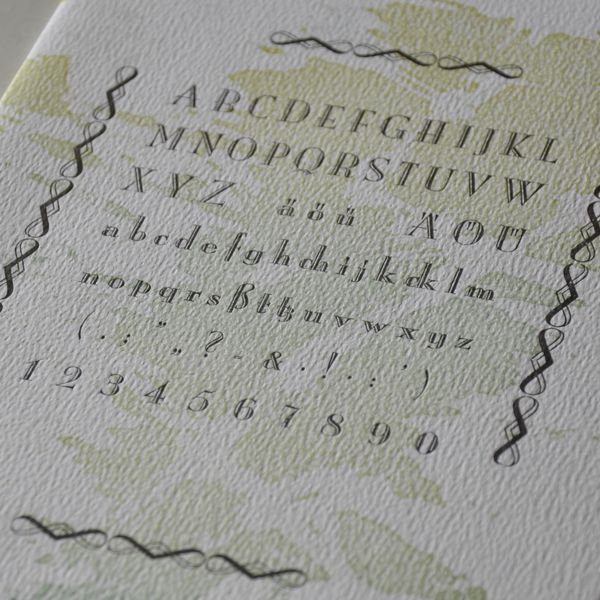 ABCDEFGHIJKL
MNOPQRSTUVW
XYZ äöü ÄÖÜ
abcdefghchijkcklm
nopqrsßttzuvwxyz
1234567890